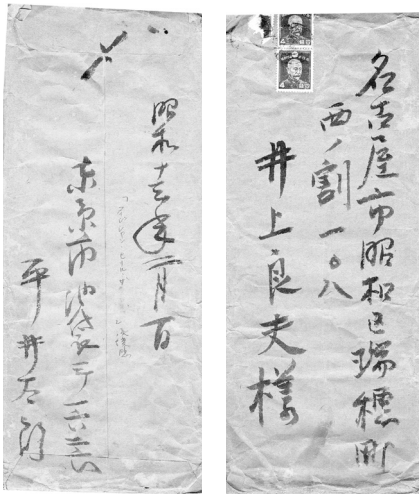 名古屋市昭和区瑞穂町
西ノ割一〇八
井上良夫様
昭和十 年 月
東京市池袋三ノ一六二六
平井太郎